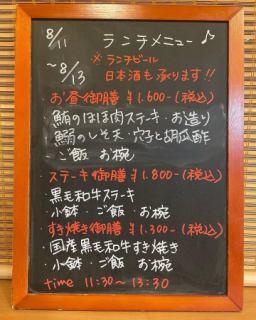 8/11
ランチメニュー♪
～8/13
※ランチビール
日本酒も承ります!!
・お昼御膳 ¥1.600-(税込)
・鮪のほほ肉ステーキ・お造り
・鰯のしそ天・穴子と胡瓜酢
・ご飯 お椀
・ステーキ御膳 ¥1.800-(税込)
・黒毛和牛ステーキ
・小鉢・ご飯・お椀
・すき焼き御膳 ¥1.300-(税込)
・国産黒毛和牛すき焼き
・小鉢・ご飯 お椀
time 11:30～13:30